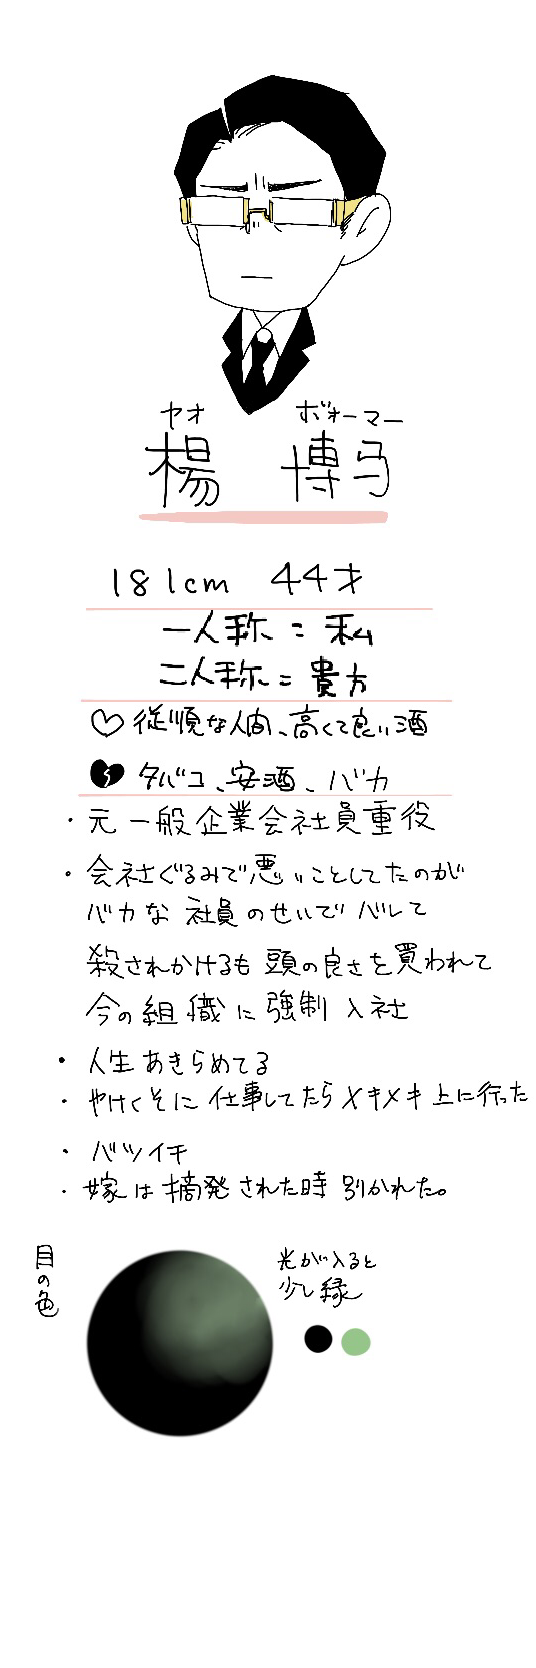 ヤオ ボォーマー
楊 博马
181cm 44才
一人称 = 私
二人称 = 貴方
♡ 従順な人間、高くて良い酒
💔 タバコ、安酒、バカ
・元 一般企業会社員重役
・会社ぐるみで悪いことしてたのが
バカな 社員のせいで バレて
殺されかけるも 頭の良さを買われて
今の組織に強制入社
・人生あきらめてる
・やけくそに 仕事してたらメキメキ上に行った
・バツイチ
・嫁は摘発された時 別かれた。
目の色
光が入ると
少し緑